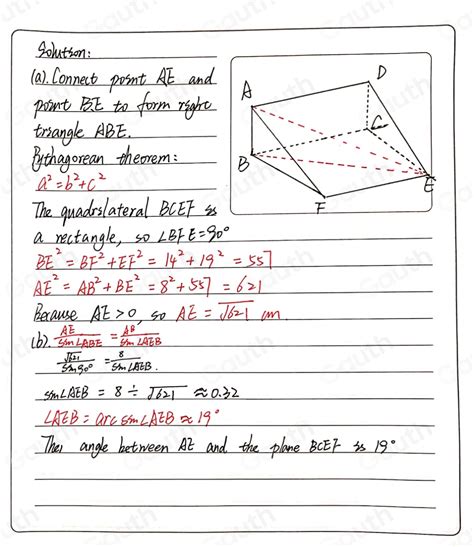 Solution:
(a). Connect point AE and
point BE to form right
triangle ABE.
Pythagorean theorem:
a² = b² + c²
The quadrilateral BCEF is
a rectangle, so ∠BFE = 90°
BE² = BF² + EF² = 14² + 19² = 557
AE² = AB² + BE² = 8² + 557 = 621
Because AE > 0, so AE = √621 cm.
(b). AE / sin∠ABE = AB / sin∠AEB
√621 / sin90° = 8 / sin∠AEB.
sin∠AEB = 8 ÷ √621 ≈ 0.32
∠AEB = arc sin∠AEB ≈ 19°
The angle between AE and the plane BCEF is 19°
A
D
C
B
E
F
Gauth